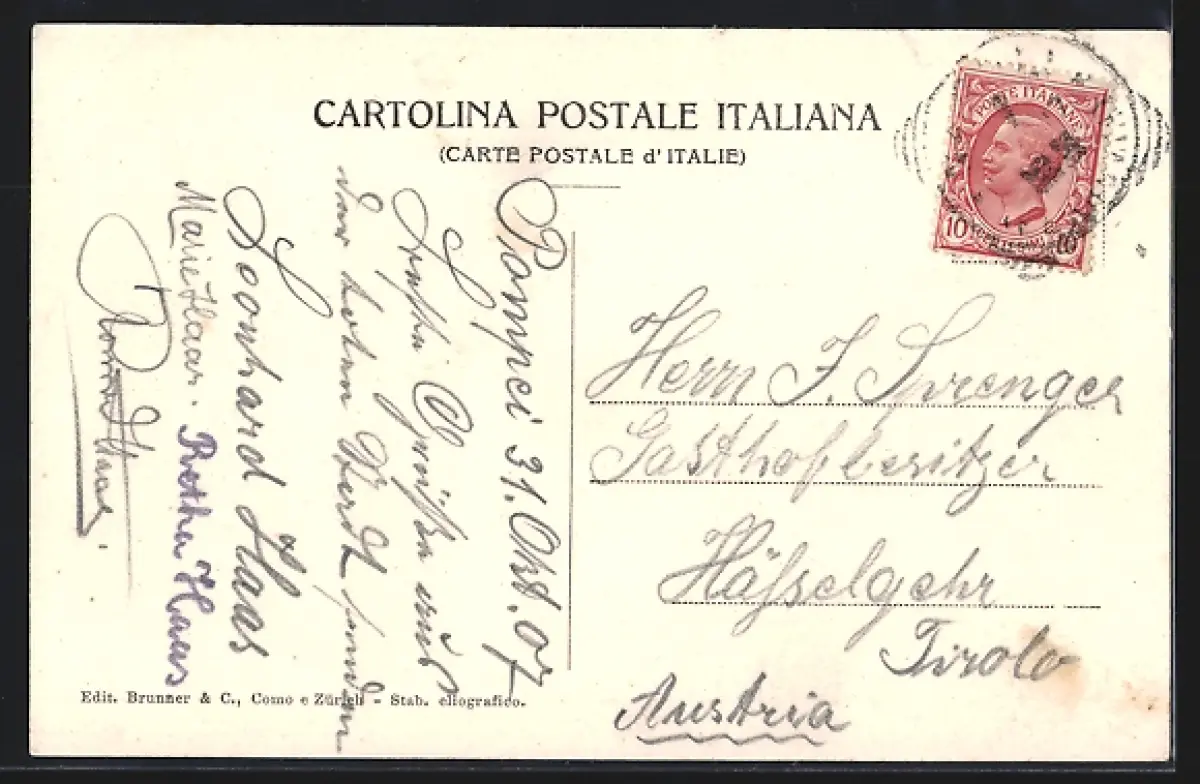 CARTOLINA POSTALE ITALIANA
(CARTE POSTALE d'ITALIE)
POSTE ITALIANE
10 10
Pompei 31. Okt. 07
Grüße aus
der toten Stadt senden
Leonhard Haas
Marie Haas. Retha Haas
Haas.
Herrn J. Sprenger
Gasthofbesitzer
Häfselgehr
Tirolo
Austria
Edit. Brunner & C., Como e Zürich - Stab. eliografico.